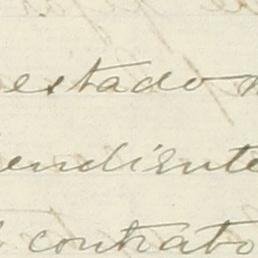 estado
endiente
contrato